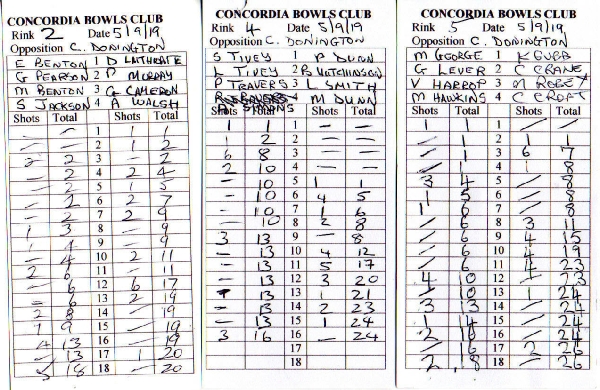 CONCORDIA BOWLS CLUB
Rink 2 Date 5/9/19
Opposition C. DONINGTON
E BENTON 1 D LATHRATE
G PEARSON 2 P MURRAY
M BENTON 3 G CAMERON
S JACKSON 4 A WALSH
Shots Total Shots Total
– – 1 1 1
– – 2 1 2
2 2 3 – 2
– 2 4 2 4
– 2 5 1 5
– 2 6 2 7
– 2 7 2 9
1 3 8 – 9
1 4 9 – 9
– 4 10 2 11
2 6 11 – 11
– 6 12 6 17
– 6 13 2 19
2 8 14 – 19
1 9 15 – 19
4 13 16 – 19
– 13 17 1 20
5 18 18 – 20
CONCORDIA BOWLS CLUB
Rink 4 Date 5/9/19
Opposition C. DONINGTON
S TIVEY 1 P DUNN
L TIVEY 2 B HUTCHINSON
P TRAVERS 3 L SMITH
4 M DUNN
A SIMONS
Shots Total Shots Total
1 1 1 – –
1 2 2 – –
6 8 3 – –
2 10 4 – –
– 10 5 1 1
– 10 6 4 5
– 10 7 1 6
– 10 8 2 8
3 13 9 – 8
– 13 10 4 12
– 13 11 5 17
– 13 12 3 20
13 13 21
– 13 14 2 23
– 13 15 1 24
3 16 16 – 24
17
18
CONCORDIA BOWLS CLUB
Rink 5 Date 5/9/19
Opposition C. DONINGTON
M GEORGE 1 K GUBB
G LEVER 2 C CRANE
V HARROP 3 M ROBEY
M HAWKINS 4 C CROFT
Shots Total Shots Total
1 1 1 / /
/ 1 2 1 1
/ 1 3 6 7
/ 1 4 1 8
3 4 5 / 8
1 5 6 / 8
1 6 7 / 8
/ 6 8 3 11
/ 6 9 4 15
/ 6 10 4 19
/ 6 11 4 23
4 10 12 / 23
/ 10 13 1 24
3 13 14 / 24
1 14 15 / 24
2 16 16 / 24
/ 16 17 2 26
2 18 18 / 26